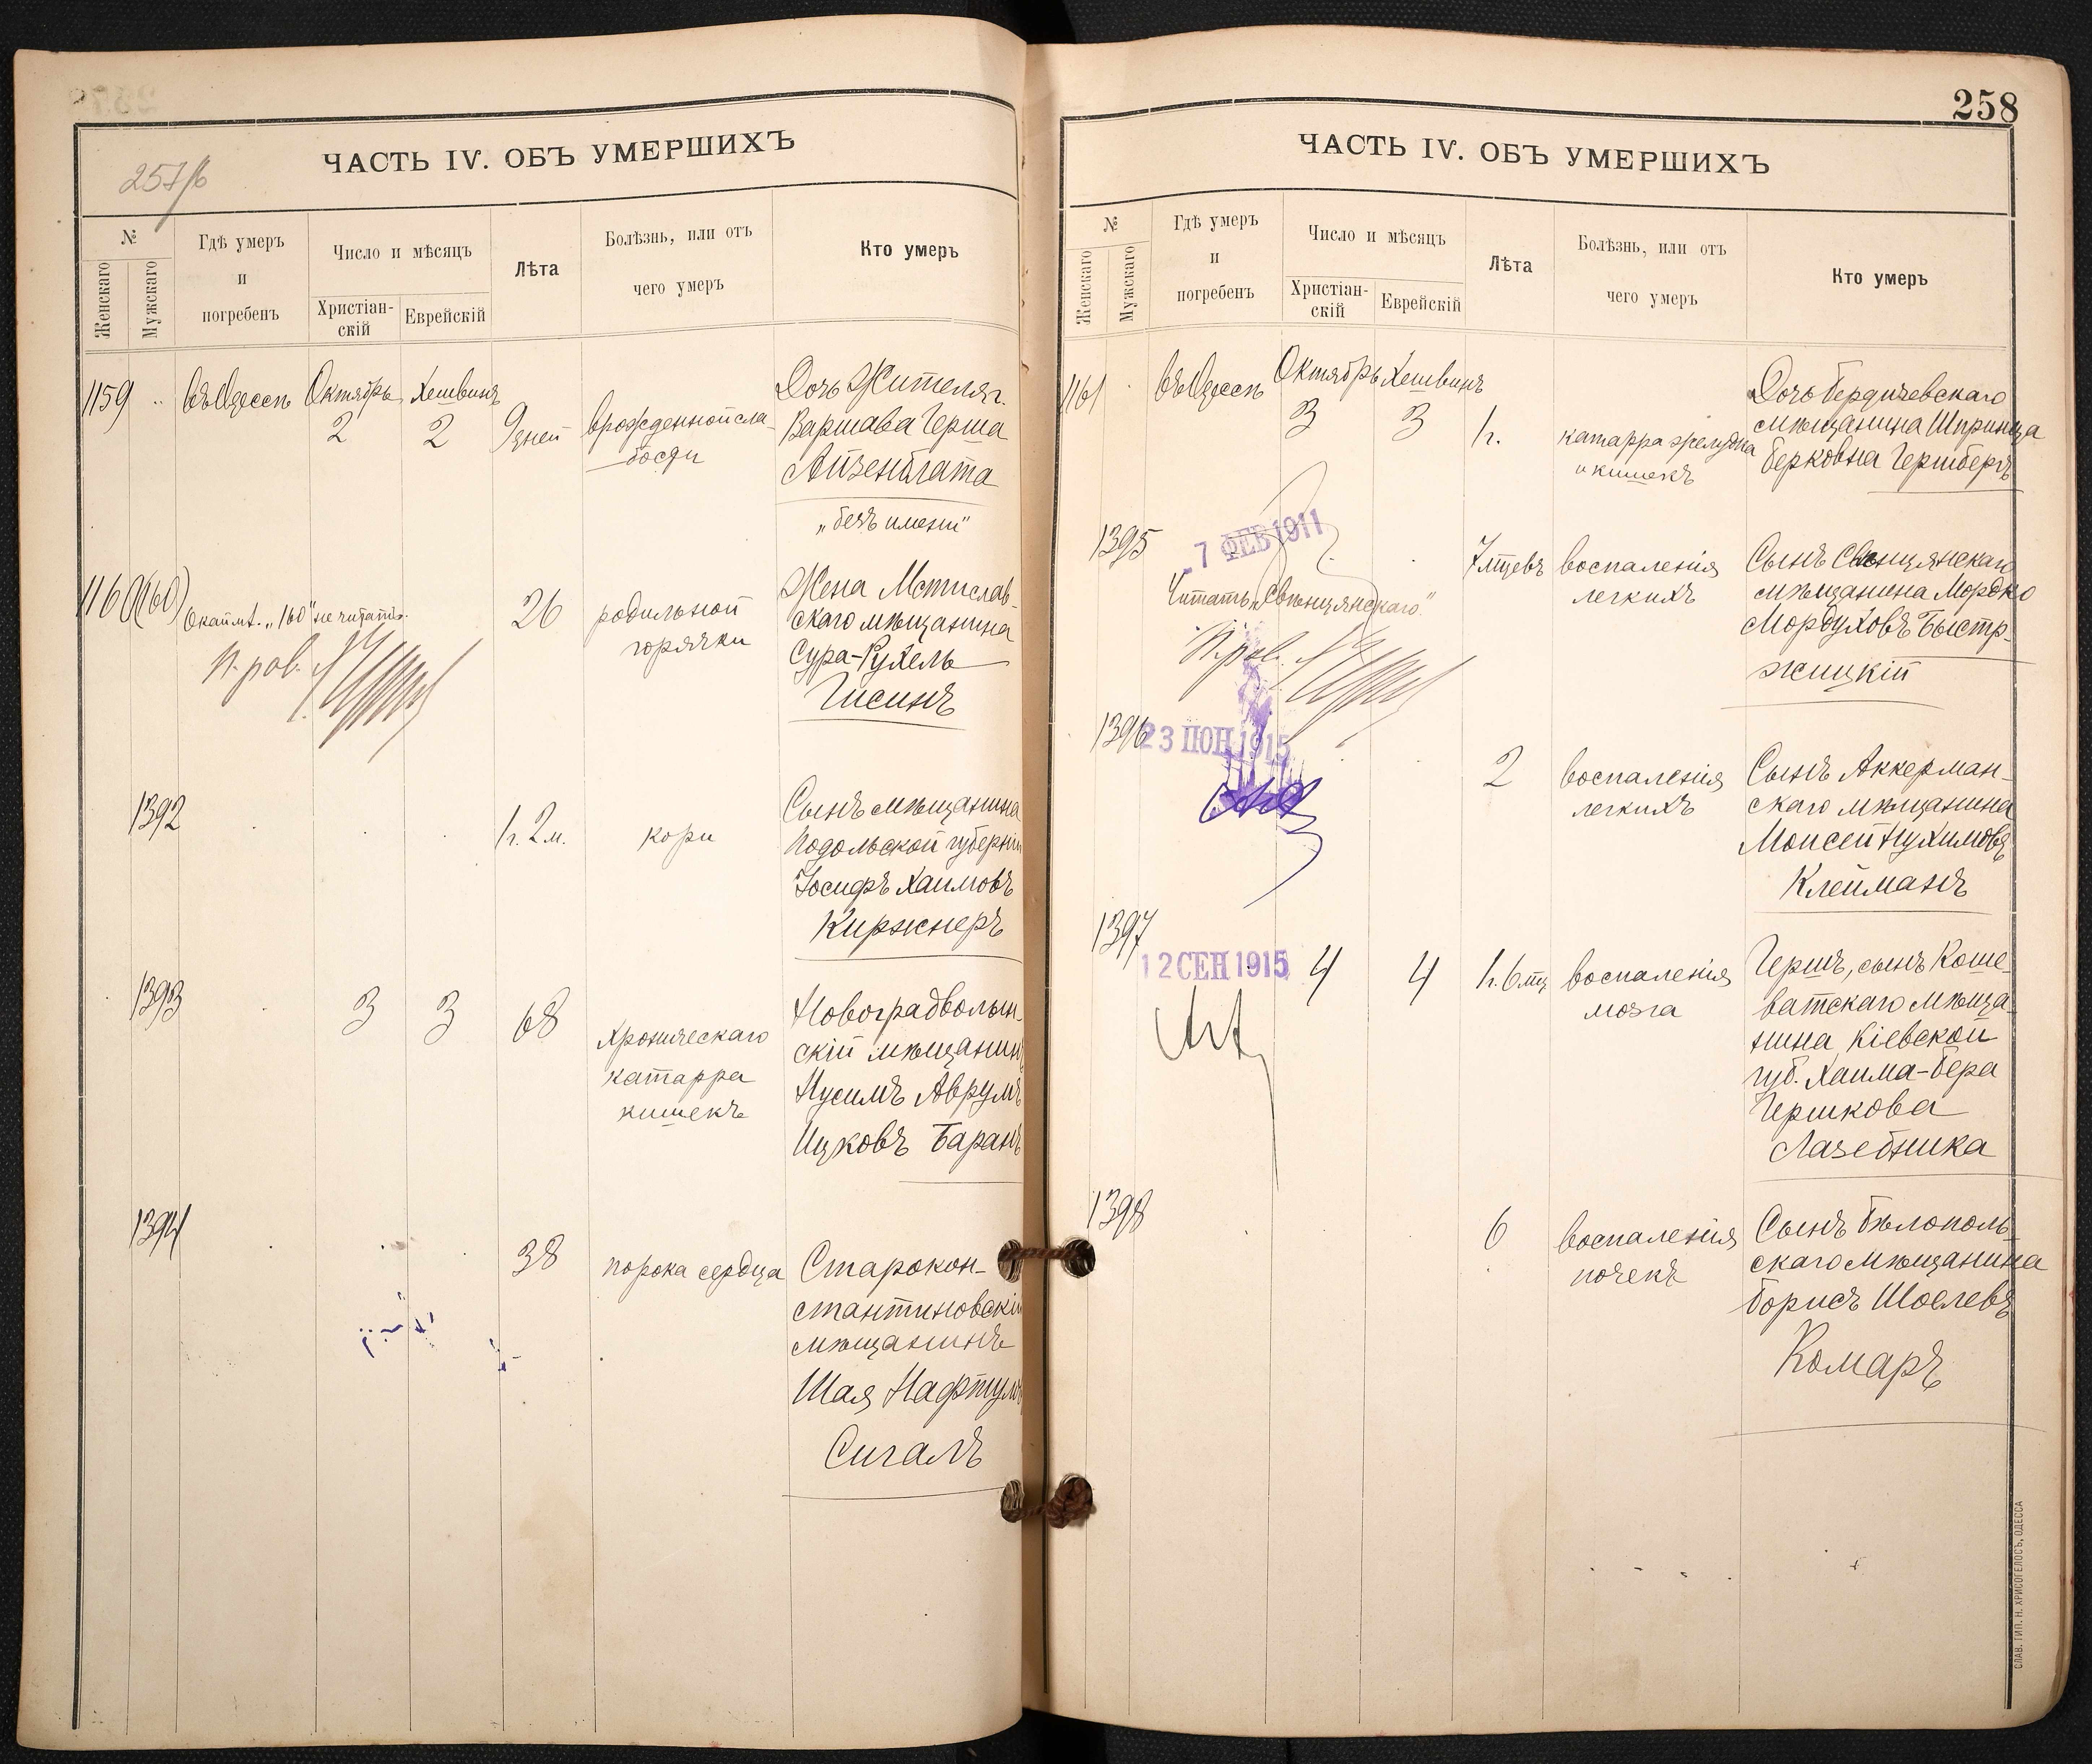 257/б
ЧАСТЬ IV. ОБЪ УМЕРШИХЪ
№
Женскаго
Мужскаго
Гдѣ умеръ
и
погребенъ
Число и мѣсяцъ
Христіан-
скій
Еврейскій
Лѣта
Болѣзнь, или отъ
чего умеръ
Кто умеръ
1159
въ Одессѣ
Октябрь
2
Хешвинъ
2
9 дней
врожденной сла-
бости
Дочь Жителя г.
Варшава Герша
Айзенблата
„безъ имени"
1160 (160)
Окаймл. „160" не читать.
26
родильной
горячки
Жена Мстислав-
скаго мѣщанина
Сура-Рухель
Гисинъ
1392
1 г. 2 м.
кори
Сынъ мѣщанина
Подольской губерніи
Іосифъ Хаимовъ
Киржнеръ
1393
3
3
68
хроническаго
катарра
кишекъ
Новоградволын-
скій мѣщанинъ
Нусимъ Аврумъ
Ицковъ Баранъ
1394
38
порока сердца
Старокон-
стантиновскій
мѣщанинъ
Шая Нафтулов
Сигалъ
258
ЧАСТЬ IV. ОБЪ УМЕРШИХЪ
№
Женскаго
Мужскаго
Гдѣ умеръ
и
погребенъ
Число и мѣсяцъ
Христіан-
скій
Еврейскій
Лѣта
Болѣзнь, или отъ
чего умеръ
Кто умеръ
1161
въ Одессѣ
Октябрь
3
Хешвинъ
3
1 г.
катарра желудка
и кишекъ
Дочь бердичевскаго
мѣщанина Шпринца
Берковна Гершберъ
1395
7 ФЕВ 1911
Читать „Свѣнцянскаго."
7 мцевъ
воспаленія
легкихъ
Сынъ Свенцянскаго
мѣщанина Мордко
Мордуховъ Быстр-
жицкій
1396
23 ПОН 1915
2
воспаленія
легкихъ
Сынъ Аккерман-
скаго мѣщанина
Моисей Нухимовъ
Клейманъ
1397
12 СЕН 1915
4
4
1 г. 6 мц
воспаленія
мозга
Гершъ, сынъ Коше-
ватскаго мѣща-
нина Кіевской
губ. Хаима-Бера
Гершкова
Лазебника
1398
6
воспаленія
почекъ
Сынъ Бѣлополь-
скаго мѣщанина
Борисъ Шоелевъ
Комаръ
СЛАВ. ТИП. Н. ХРИСОГЕЛОСЪ, ОДЕССА